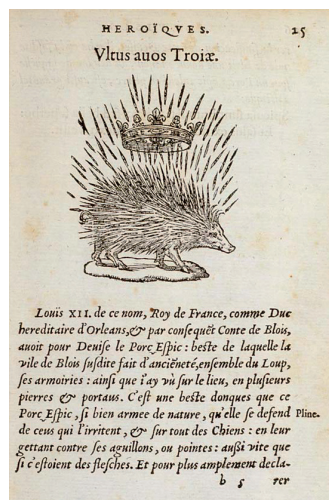 HEROÏQVES. 25
Vltus auos Troiæ.
Louïs XII. de ce nom, Roy de France, comme Duc
hereditaire d'Orleans, & par consequēt Conte de Blois,
auoit pour Deuise le Porc Espic : beste de laquelle la
vile de Blois susdite fait d'anciēneté, ensemble du Loup,
ses armoiries : ainsi que i'ay vù sur le lieu, en plusieurs
pierres & portaus. C'est une beste donques que ce
Porc Espic, si bien armee de nature, qu'elle se defend Pline.
de ceus qui l'irritent, & sur tout des Chiens : en leur
gettant contre ses aguillons, ou pointes : außi vite que
si c'estoient des flesches. Et pour plus amplement decla-
b 5 rer